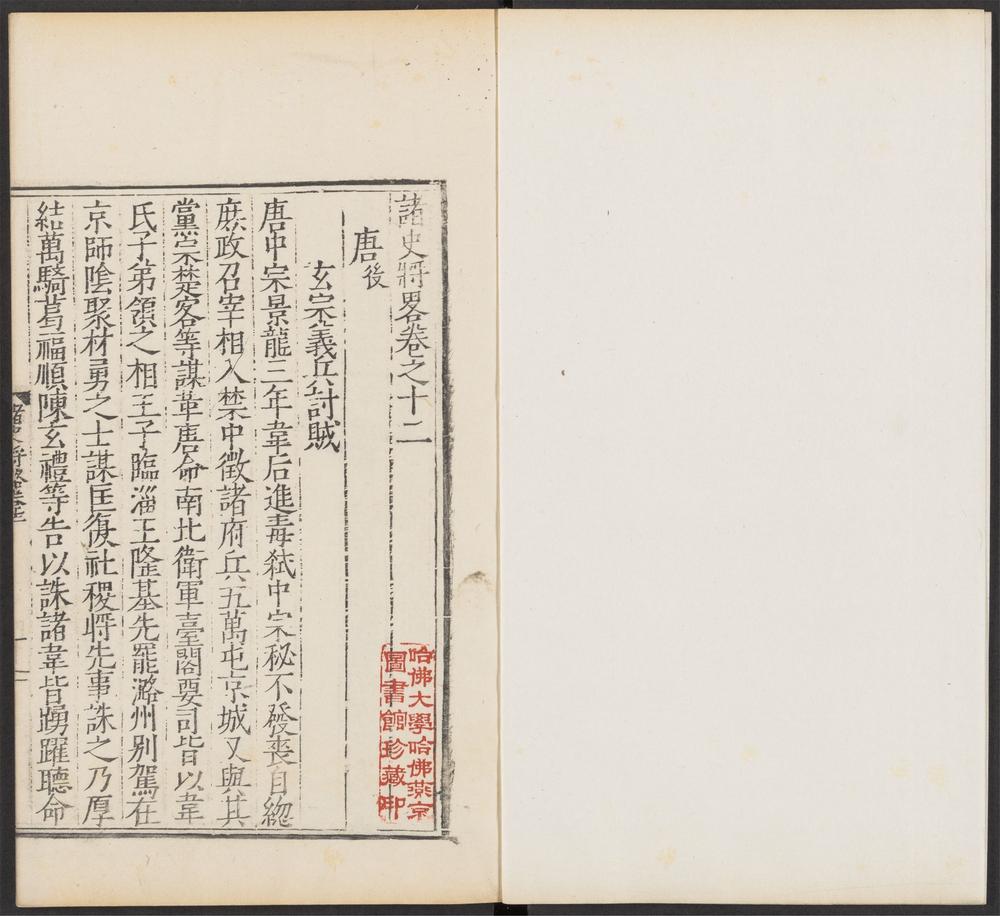 諸史將畧卷之十二
唐後
玄宗義兵討賊
唐中宗景龍三年韋后進毒弑中宗秘不發喪自緫
庶政召宰相入禁中徵諸府兵五萬屯京城又與其
黨宗楚客等謀革唐命南北衛軍臺閣要司皆以韋
氏子弟領之相王子臨淄王隆基先罷潞州別駕在
京師陰聚材勇之士謀匡復社稷將先事誅之乃厚
結萬騎葛福順陳玄禮等告以誅諸韋皆踴躍聽命
哈佛大學哈佛燕京
圖書館珍藏印